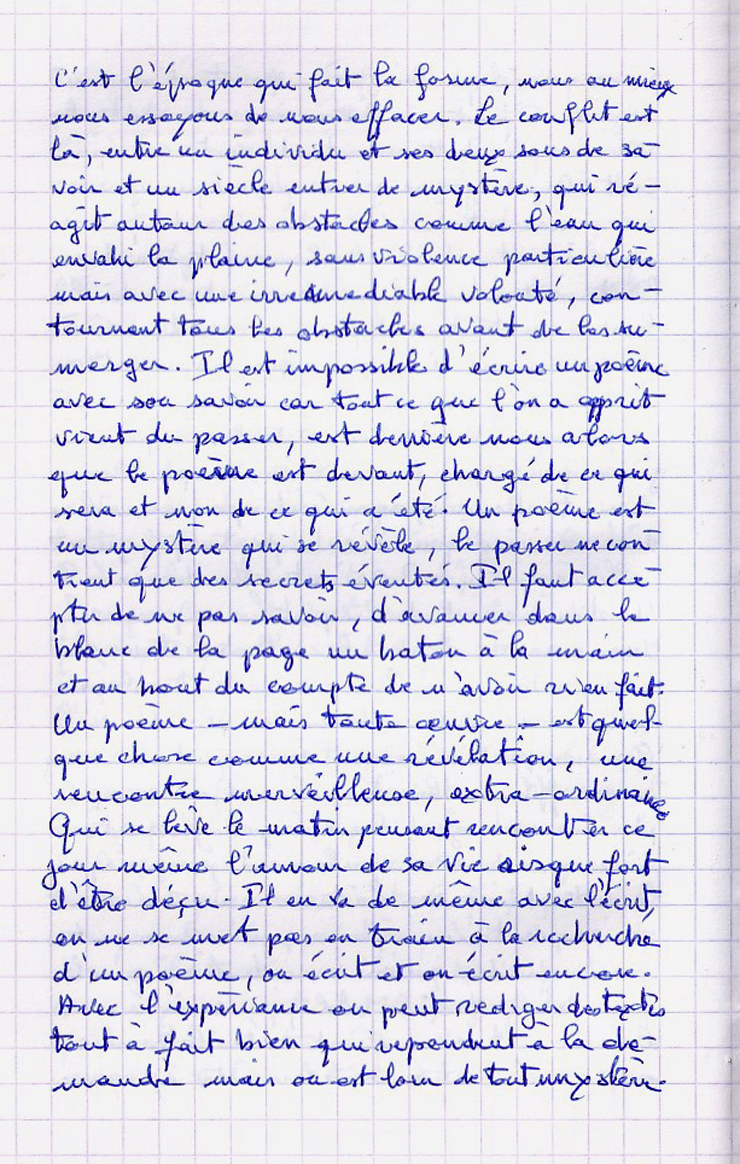 C'est l'époque qui fait la forme, nous au mieux
nous essayons de nous effacer. Le conflit est
là, entre un individu et ses deux sous de sa
voir et un siècle entier de mystère, qui ré-
agit autour des obstacles comme l'eau qui
envahi la plaine, sans violence particulière
mais avec une irremediable volonté, con-
tournant tous les obstacles avant de les su-
merger. Il est impossible d'écrire un poème
avec son savoir car tout ce que l'on a apprit
vient du passer, est derrière nous alors
que le poème est devant, chargé de ce qui
sera et non de ce qui a été. Un poème est
un mystère qui se révèle, le passer ne con
tient que des secrets éventés. Il faut acce
pter de ne pas savoir, d'avancer dans le
blanc de la page un baton à la main
et au bout du compte de n'avoir rien fait.
Un poème - mais toute œuvre - est quel-
que chose comme une révélation, une
rencontre merveilleuse, extra-ordinaire
Qui se lève le matin pensant rencontrer ce
jour même l'amour de sa vie risque fort
d'être déçu. Il en va de même avec l'écrit,
on ne se met pas en train à la recherche
d'un poème, on écrit et on écrit encore.
Avec l'expériance on peut rediger des textes
tout à fait bien qui repondent à la de-
mande mais on est loin de tout mystère.